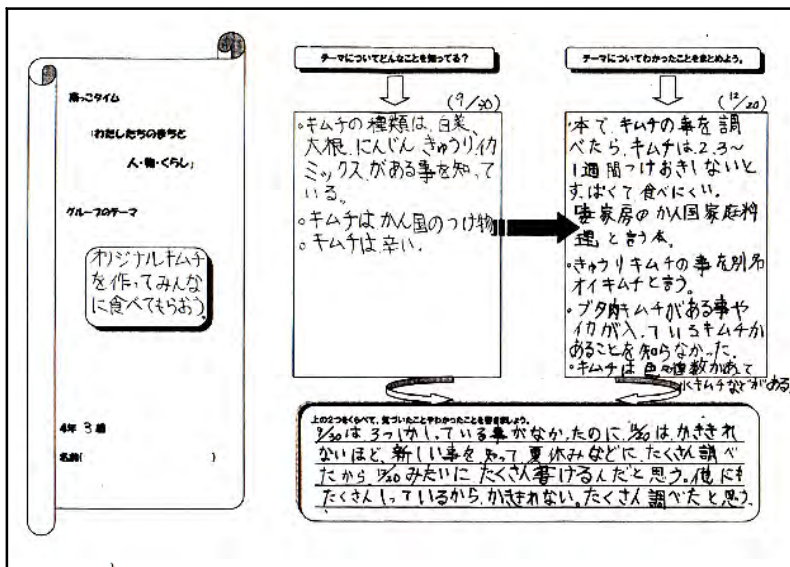 南っこタイム
「わたしたちのまちと
人・物・くらし」
グループのテーマ
オリジナルキムチ
を作ってみんな
に食べてもらおう。
4年 3組
名前( )
テーマについてどんなことを知ってる?
(9/30)
・キムチの種類は、白菜、
大根、にんじん、きゅうり、イカ
ミックスがある事を知って
いる。
・キムチはかん国のつけ物
・キムチは辛い。
テーマについてわかったことをまとめよう。
(12/20)
・本で、キムチの事を調
べたら、キムチは2.3~
1週間つけおきしないと
すっぱくて食べにくい。
「妻家房のかん国家庭料
理」と言う本。
・きゅうりキムチの事を別名
オイキムチと言う。
・ブタ肉キムチがある事や
イカが入っているキムチが
あることを知らなかった。
・キムチは色々種数があって
水キムチなどがある
上の2つをくらべて、気づいたことやわかったことを書きましょう。
9/30は3つしかしっている事がなかったのに、12/20は、かききれ
ないほど、新しい事を知って夏休みなどに、たくさん調べ
たから12/20みたいに、たくさん書けるんだと思う。他にも
たくさんしっているから、かききれない。たくさん調べたと思う。